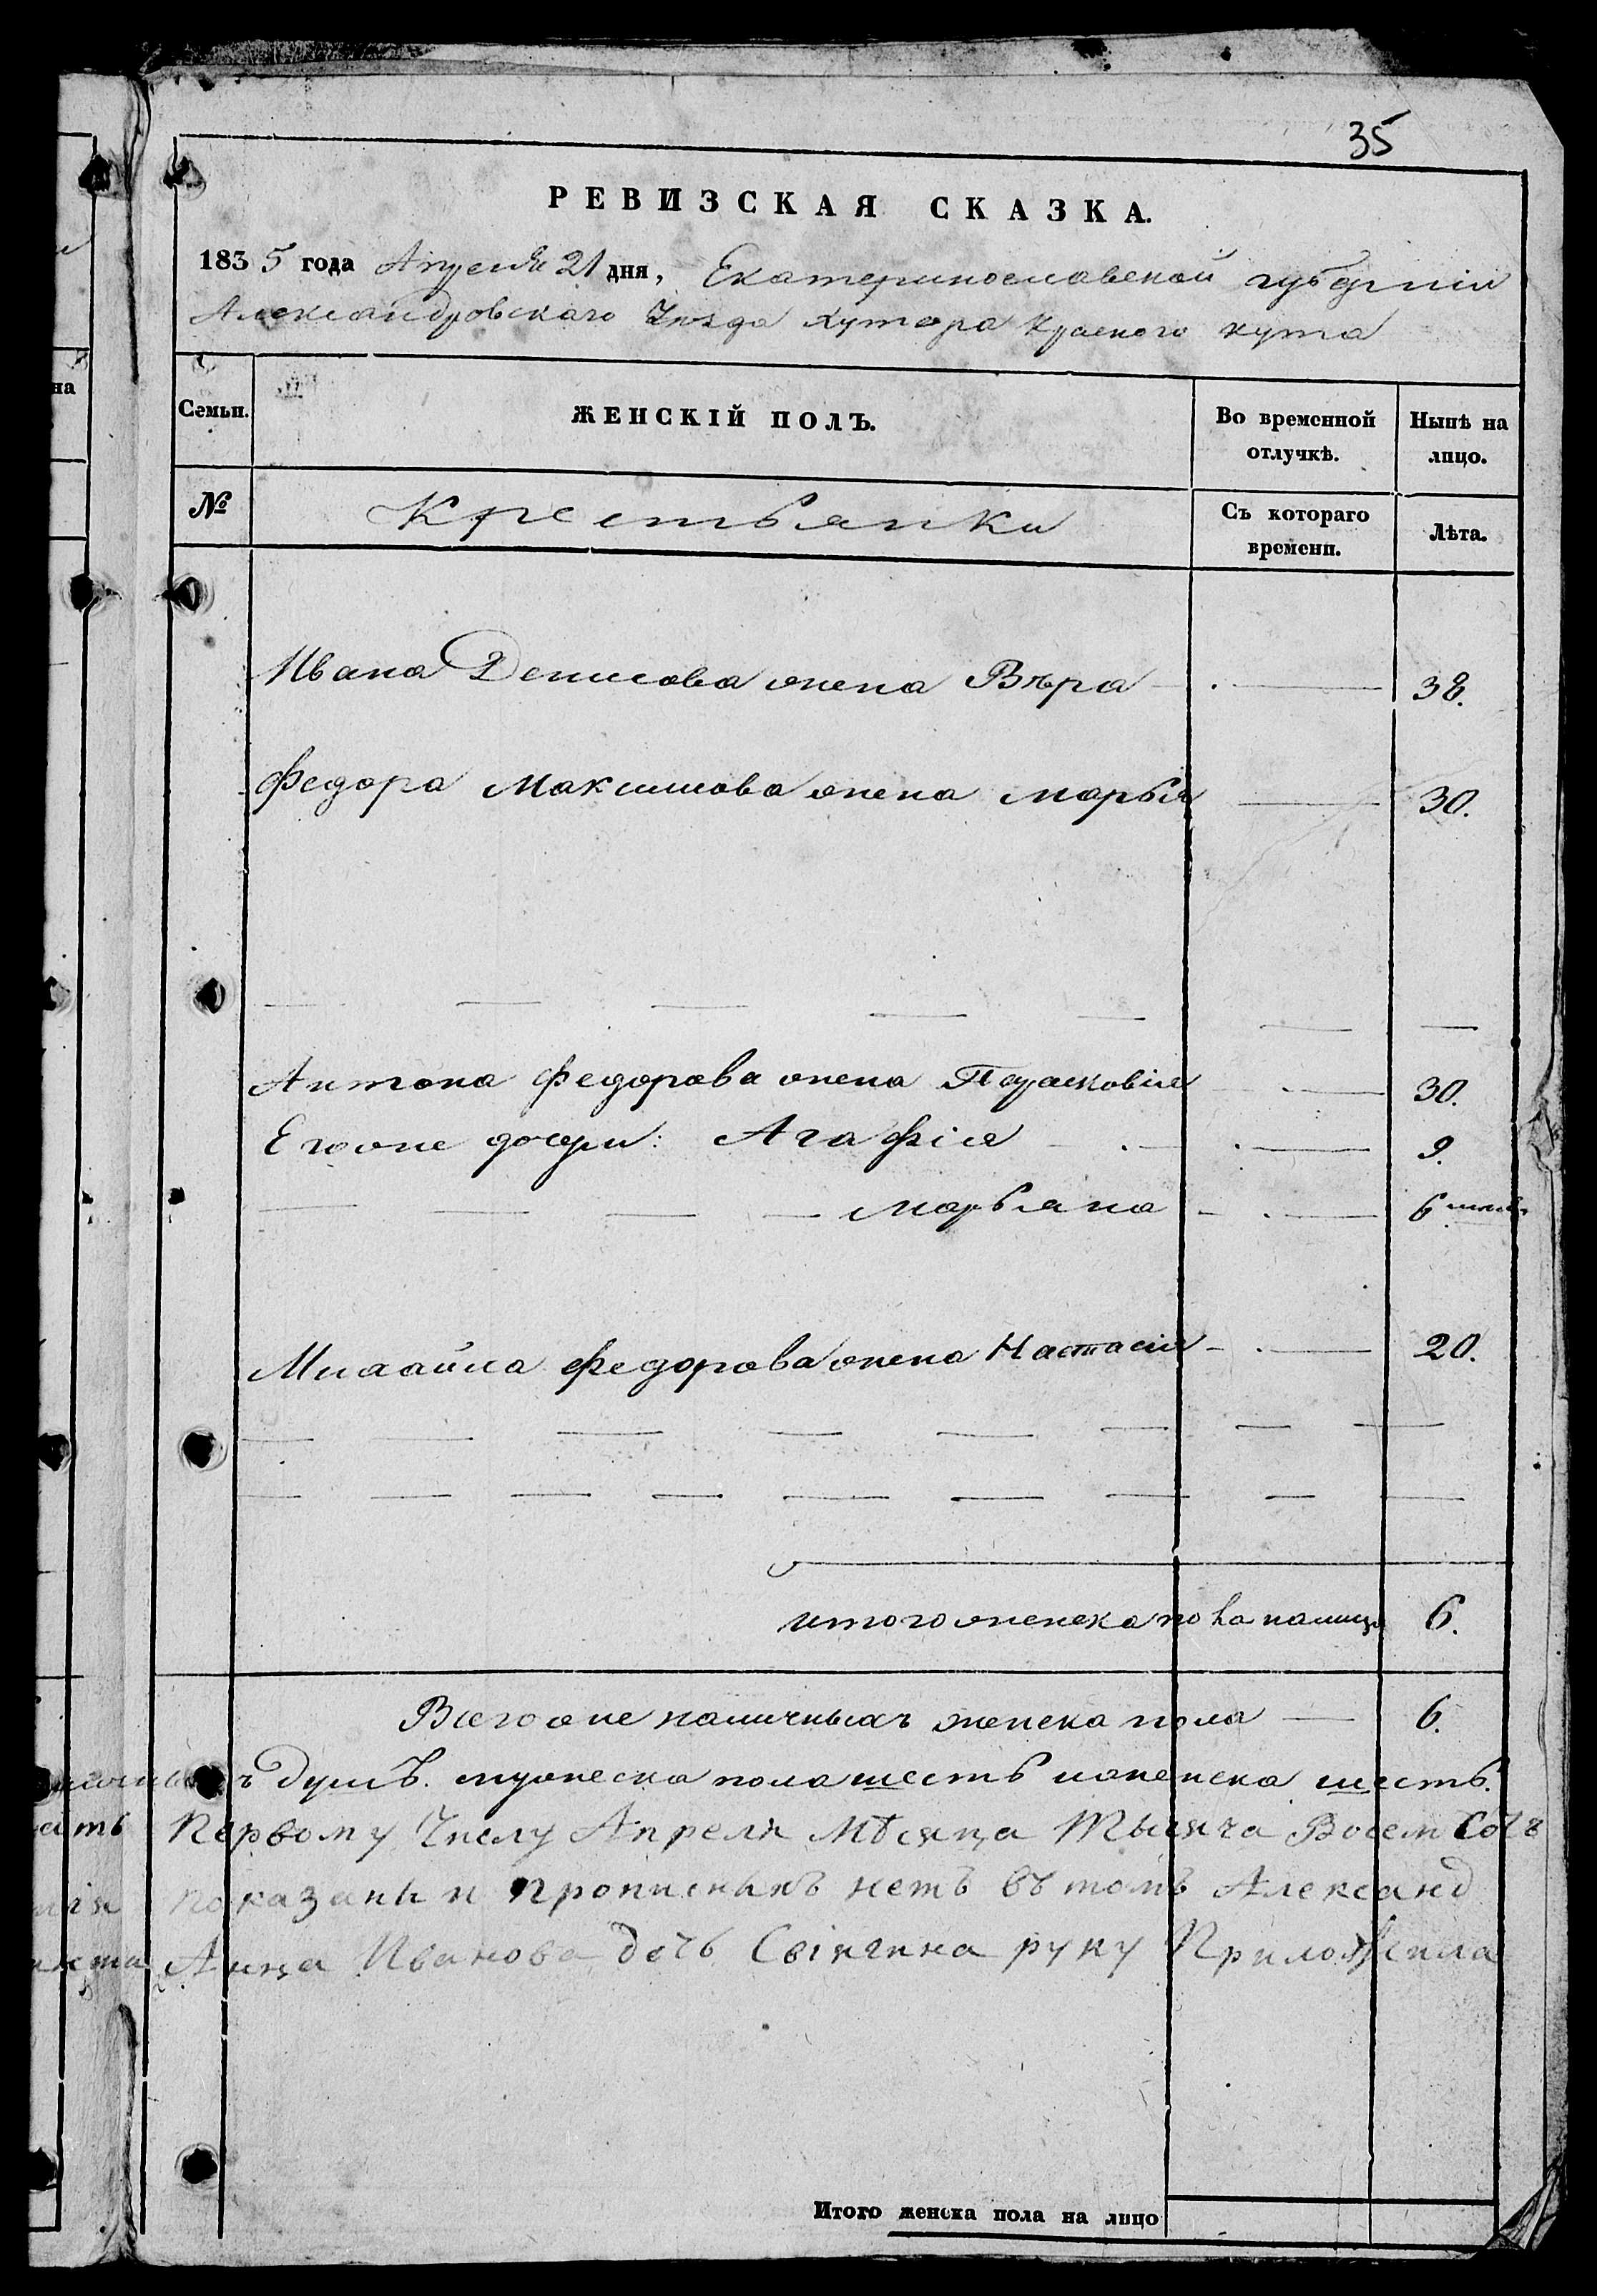 35
РЕВИЗСКАЯ СКАЗКА.
1835 года Апреля 21 дня, Екатеринославской губернии
Александровскаго Уезда хутора Красного кута
на
Семьи. ЖЕНСКІЙ ПОЛЪ. Во временной отлучкѣ. Нынѣ на лицо.
№ Крестьянки Съ котораго времени. Лѣта.
Ивана Денисова жена Вѣра 38.
Федора Максимова жена Марья 30.
Антона Федорова жена Парасковія 30.
Егоже дочери: Агафія 9.
Марьяна 6
Михайла Федорова жена Настасия 20.
итого женска по ла налицо 6.
Всегоже наличныхъ женска пола 6.
ъ душъ. мужеска пола шесть иженска шесть.
Первому Числу Апреля Мѣсяца Тысяча Восем Сотъ
показаны и прописныхъ нетъ въ томъ Александ
Иванова дочь руку Приложила
Итого женска пола на лицо